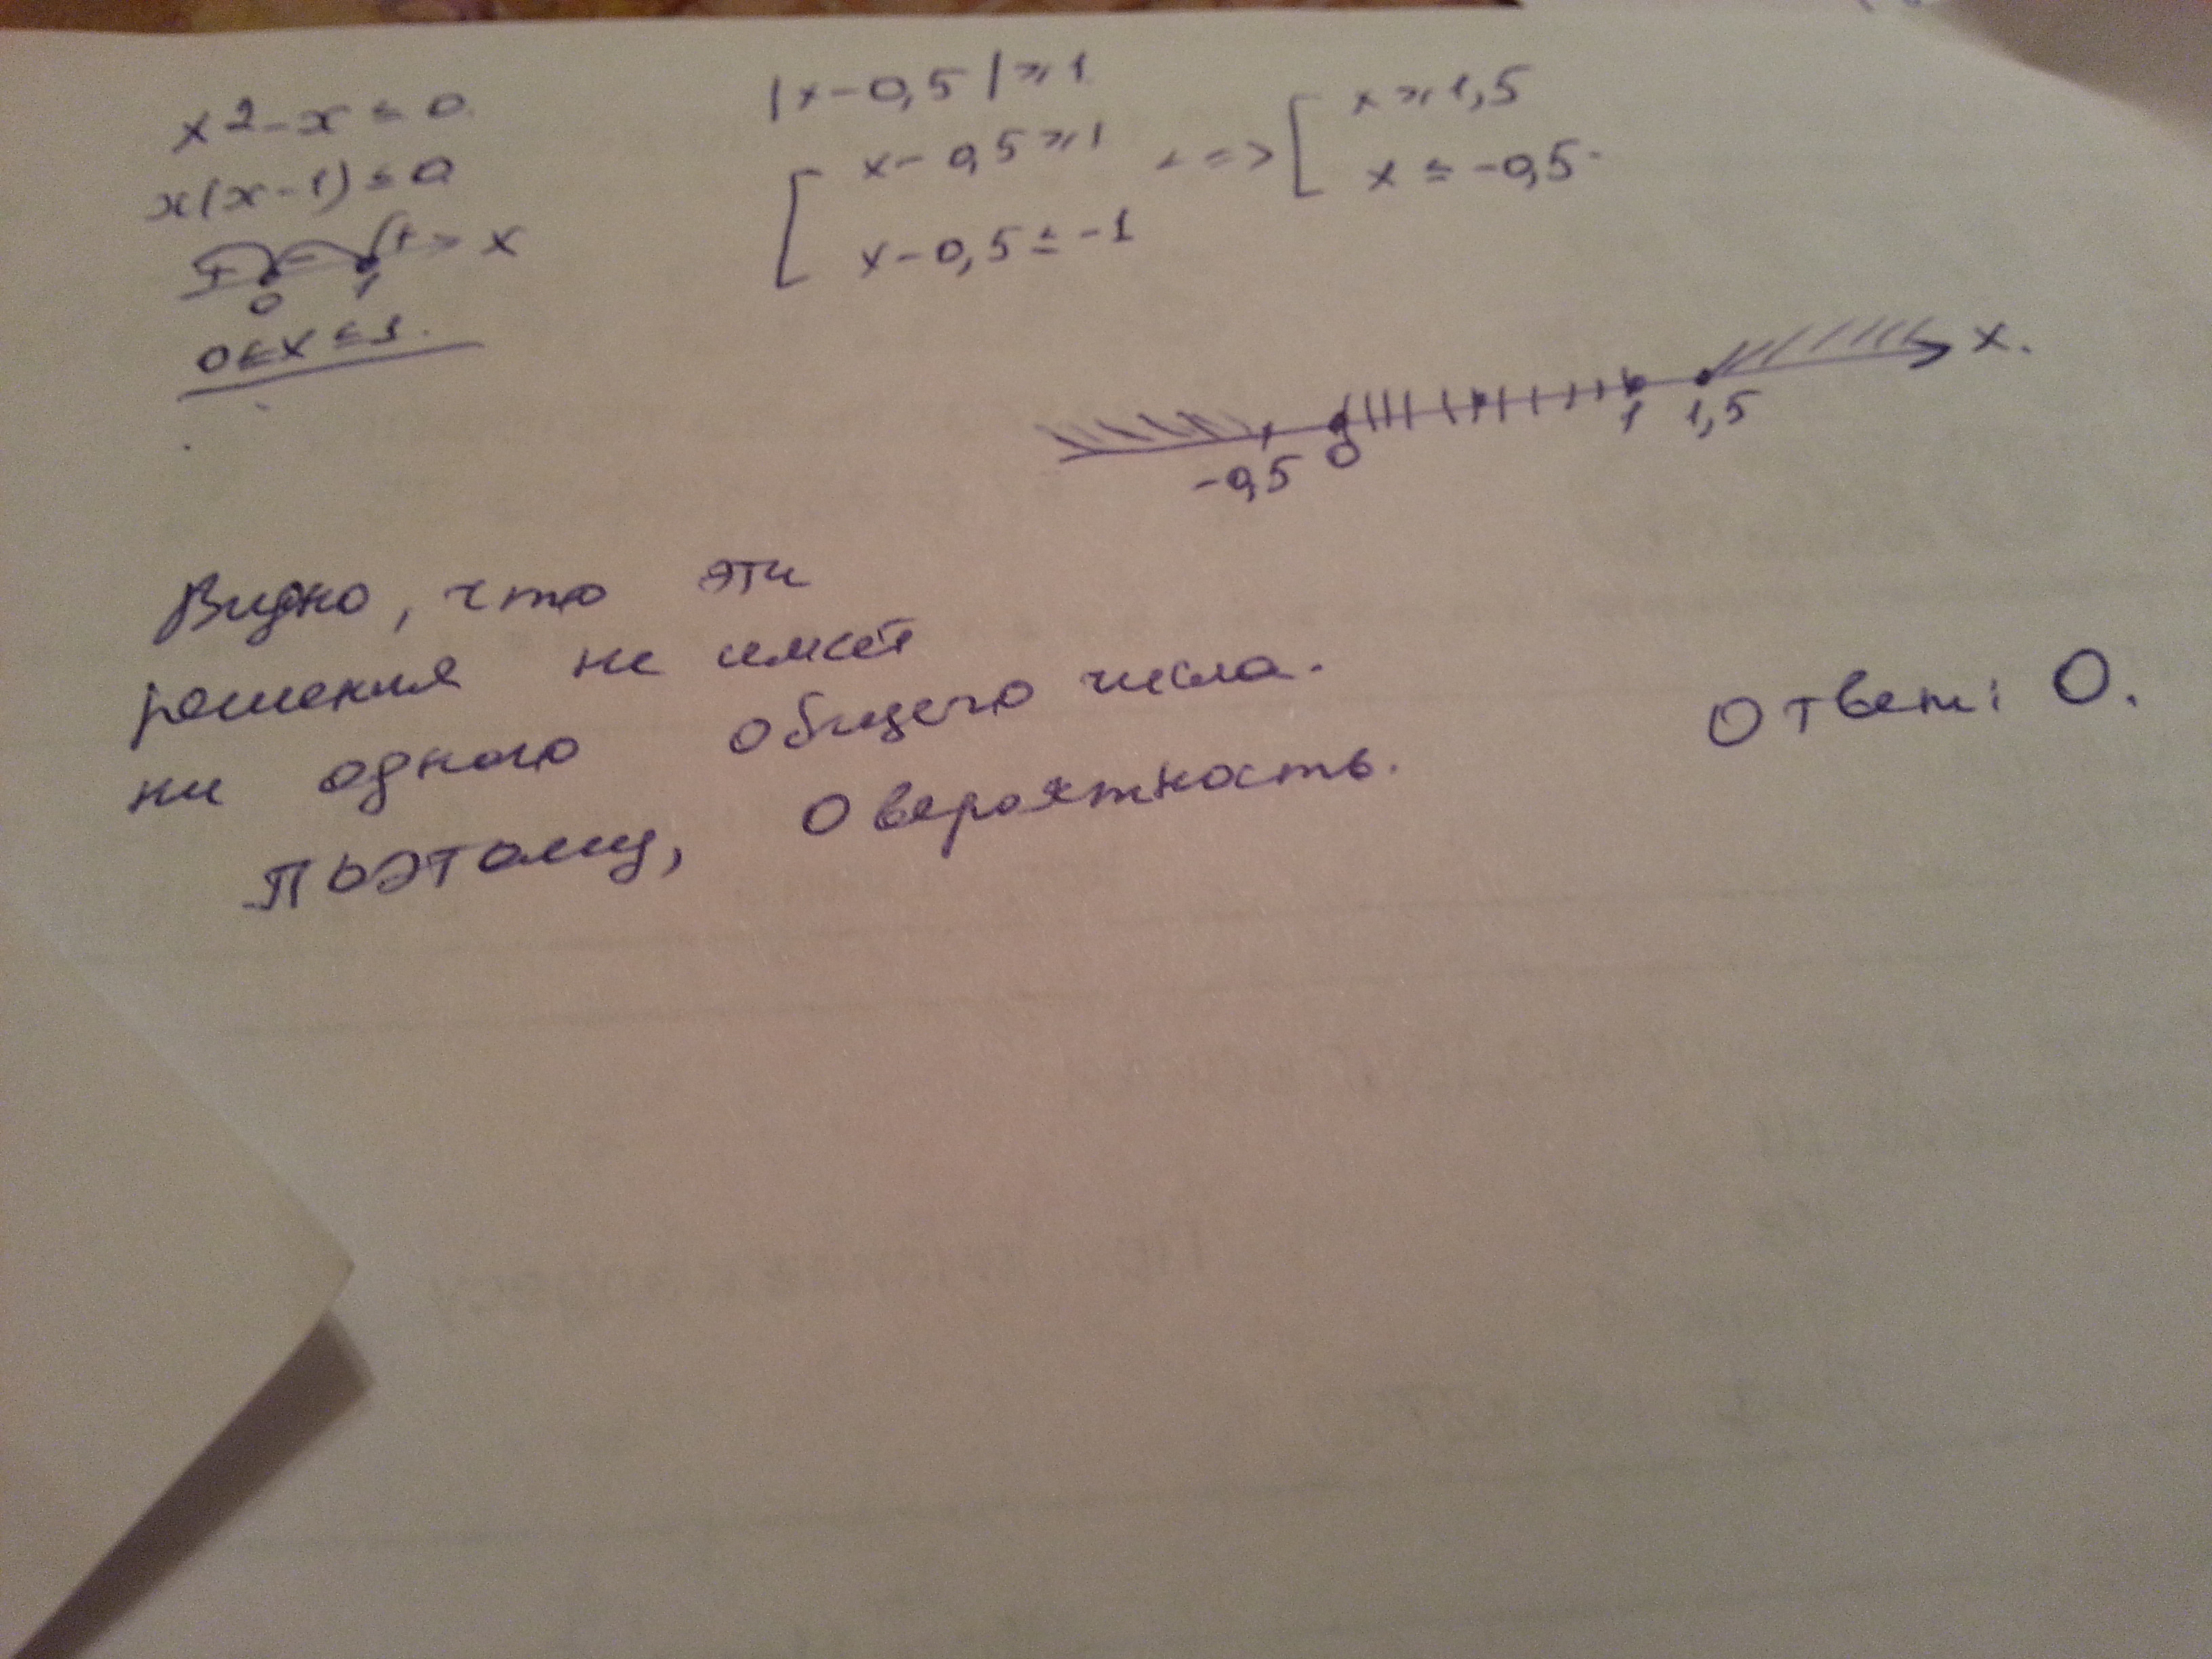 x² - x ≤ 0
x(x-1) ≤ 0
+ - + x
0 1
0 ≤ x ≤ 1.
|x - 0,5| ≥ 1
[ x - 0,5 ≥ 1 <=> [ x ≥ 1,5
x - 0,5 ≤ -1 x ≤ -0,5.
-0,5 0 1 1,5 x.
Видно, что эти
решения не имеют
ни одного общего числа.
Поэтому, 0 вероятность.
Ответ: 0.